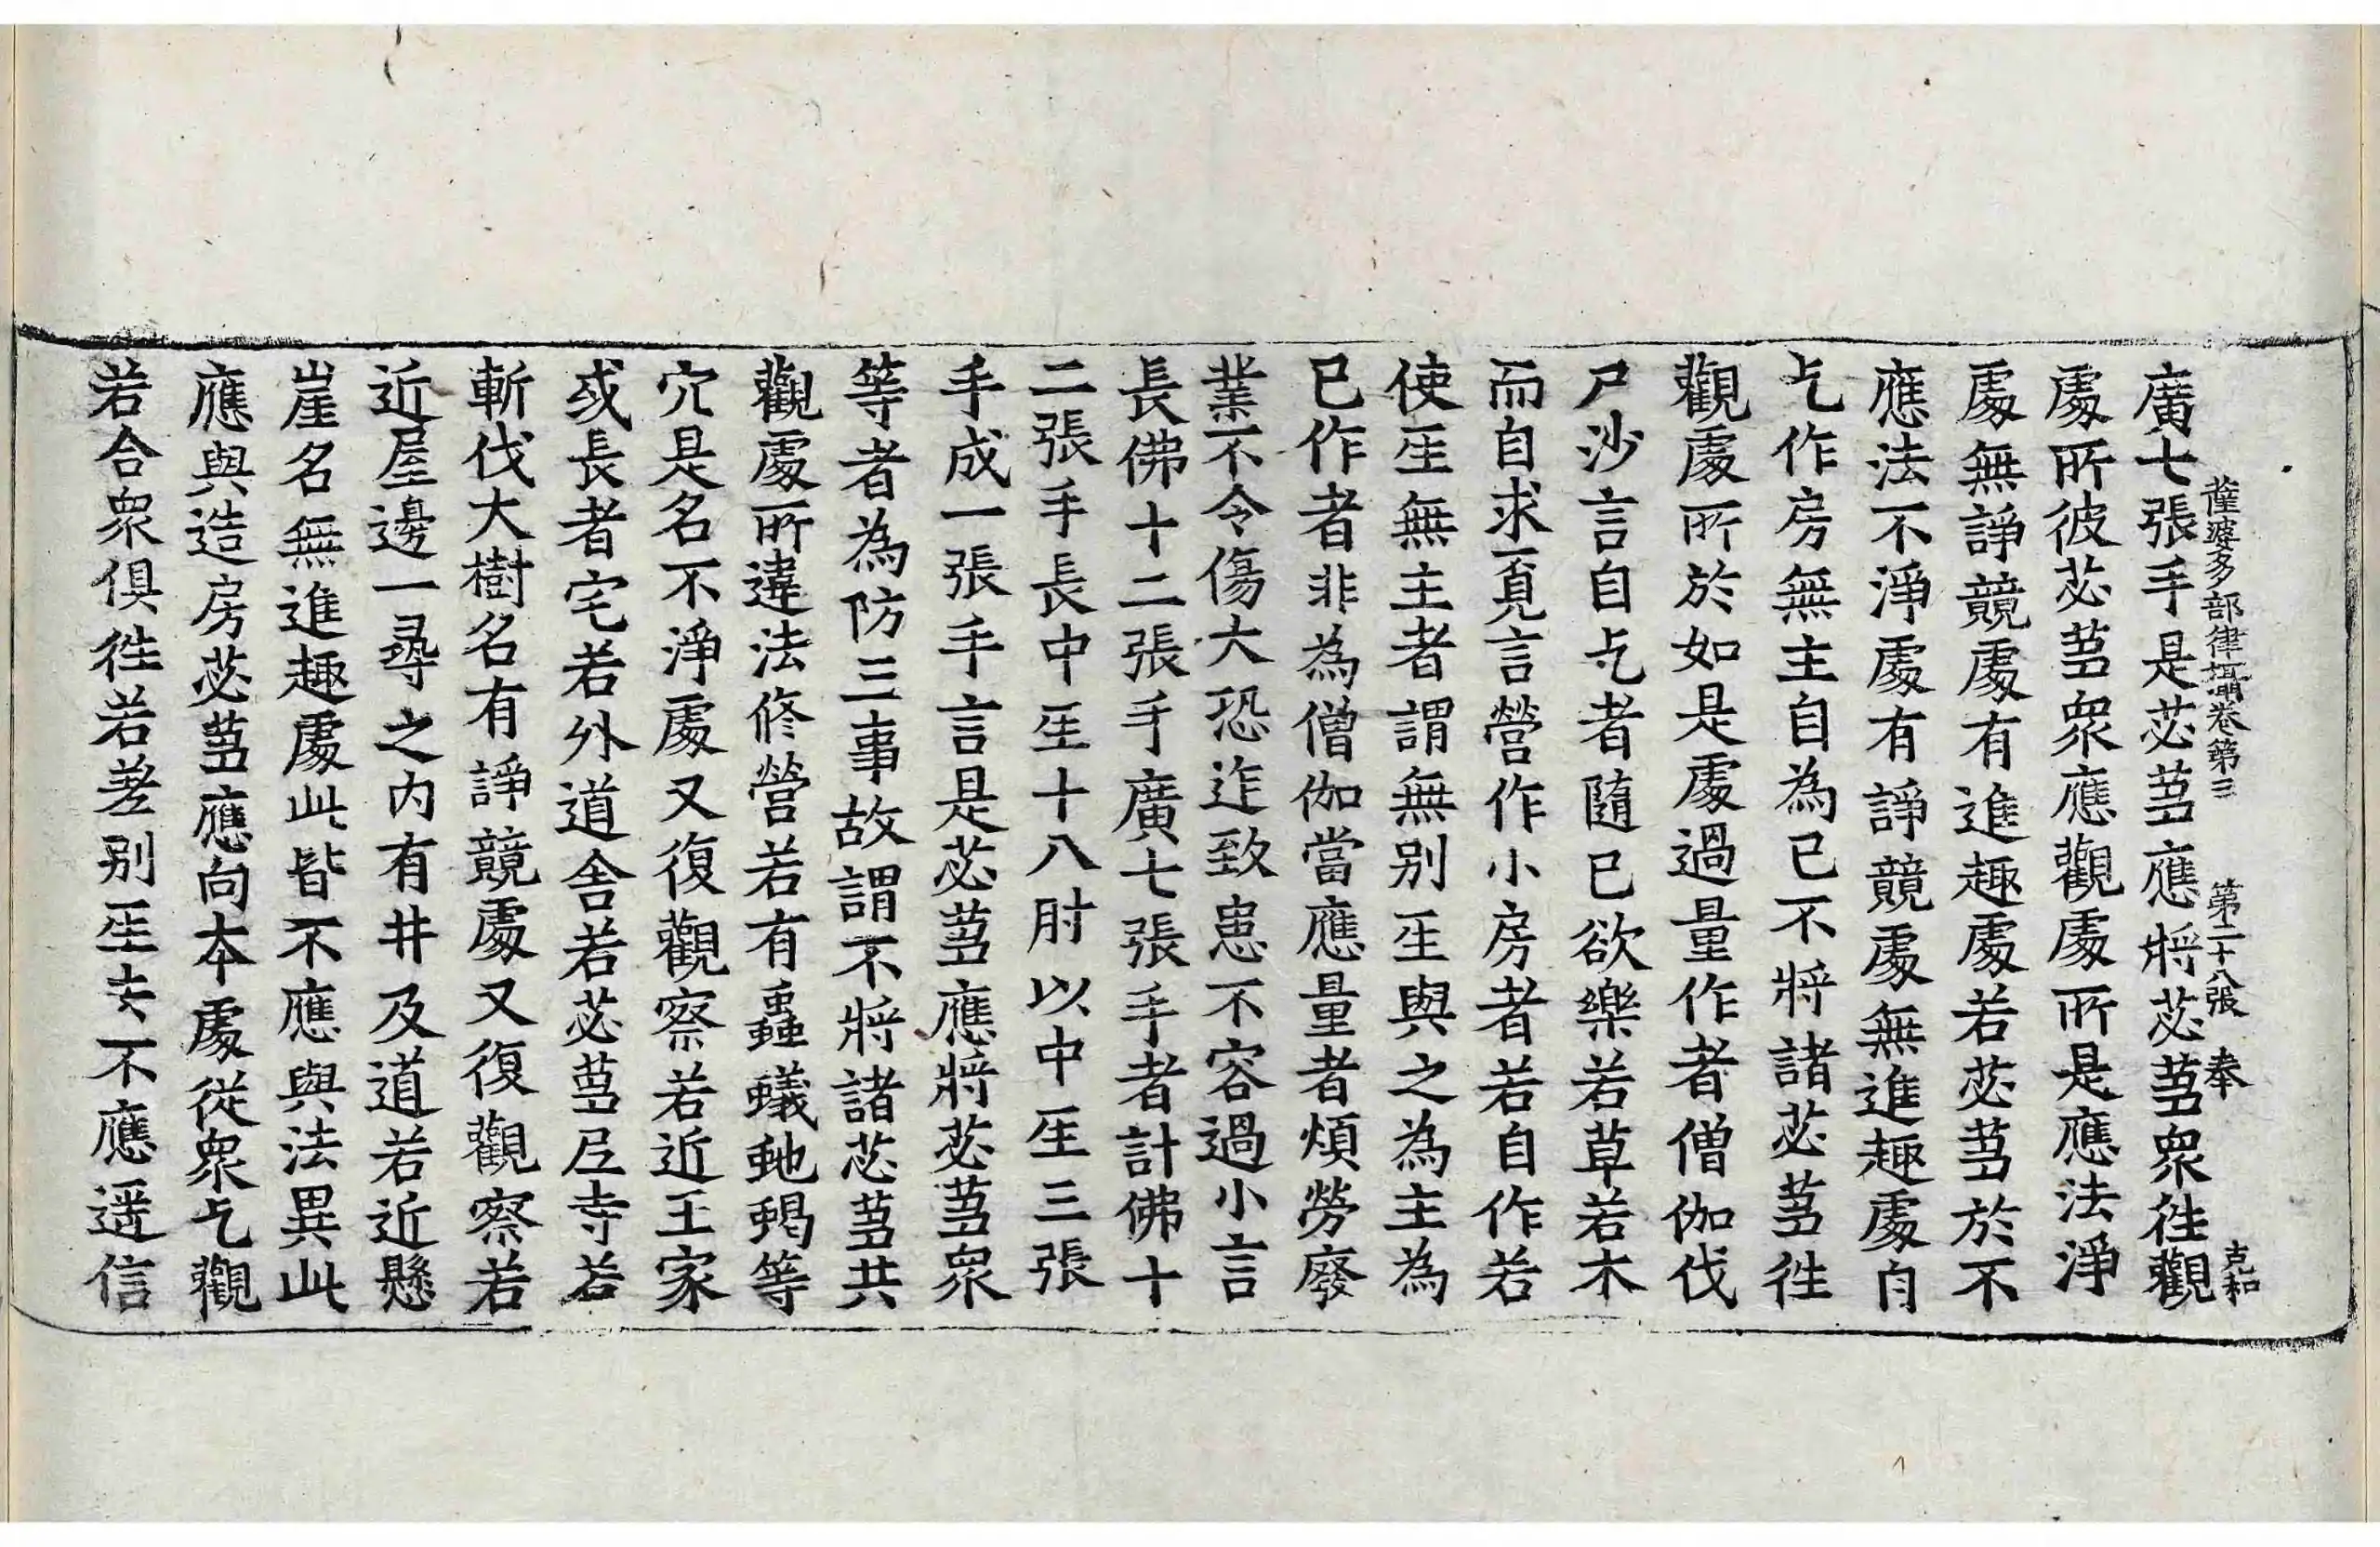 薩婆多部律攝卷第三 第二十八張 奉 克和
廣七張手是苾芻應將苾芻衆徃觀
處所彼苾芻衆應觀處所是應法淨
處無諍競處有進趣處若苾芻於不
應法不淨處有諍競處無進趣處自
乞作房無主自為己不將諸苾芻徃
觀處所於如是處過量作者僧伽伐
尸沙言自乞者隨己欲樂若草若木
而自求覓言營作小房者若自作若
使𤯔無主者謂無別𤯔與之為主為
己作者非為僧伽當應量者煩勞廢
業不令傷大恐迮致患不容過小言
長佛十二張手廣七張手者計佛十
二張手長中𤯔十八肘以中𤯔三張
手成一張手言是苾芻應將苾芻衆
等者為防三事故謂不將諸苾芻共
觀處所違法修營若有蟲蟻虵蝎等
穴是名不淨處又復觀察若近王家
或長者宅若外道舍若苾芻尼寺若
斬伐大樹名有諍競處又復觀察若
近屋邊一尋之内有井及道若近懸
崖名無進趣處此皆不應與法異此
應與造房苾芻應向本處從衆乞觀
若合衆俱徃若差別𤯔去不應遥信